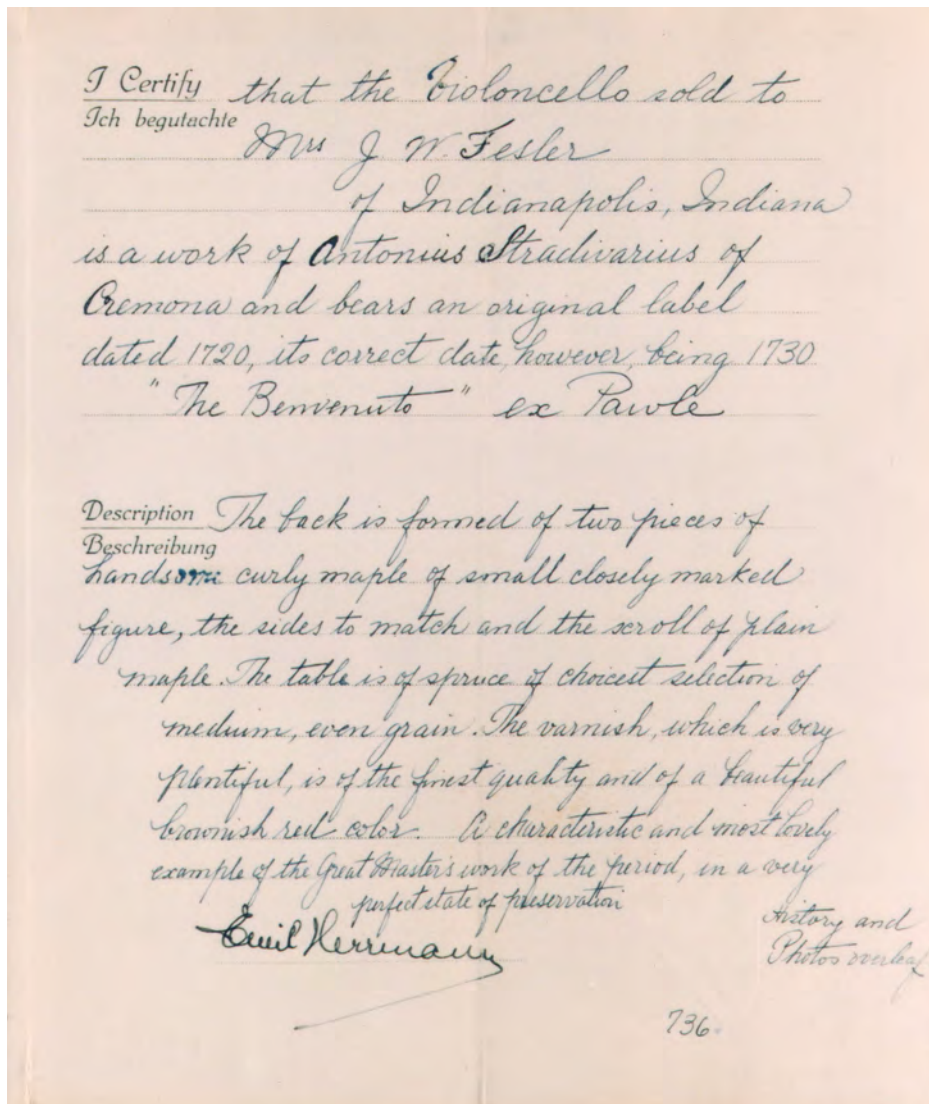 I Certify that the Violoncello sold to
Ich begutachte
Mrs J. W. Fesler
of Indianapolis, Indiana
is a work of Antonius Stradivarius of
Cremona and bears an original label
dated 1720, its correct date, however, being 1730
"The Benvenuto" ex Pawle
Description The back is formed of two pieces of
Beschreibung
handsome curly maple of small closely marked
figure, the sides to match and the scroll of plain
maple. The table is of spruce of choicest selection of
medium, even grain. The varnish, which is very
plentiful, is of the finest quality and of a beautiful
brownish red color. A characteristic and most lovely
example of the Great Master's work of the period, in a very
perfect state of preservation
Emil Herrmann
History and
Photos overleaf
736